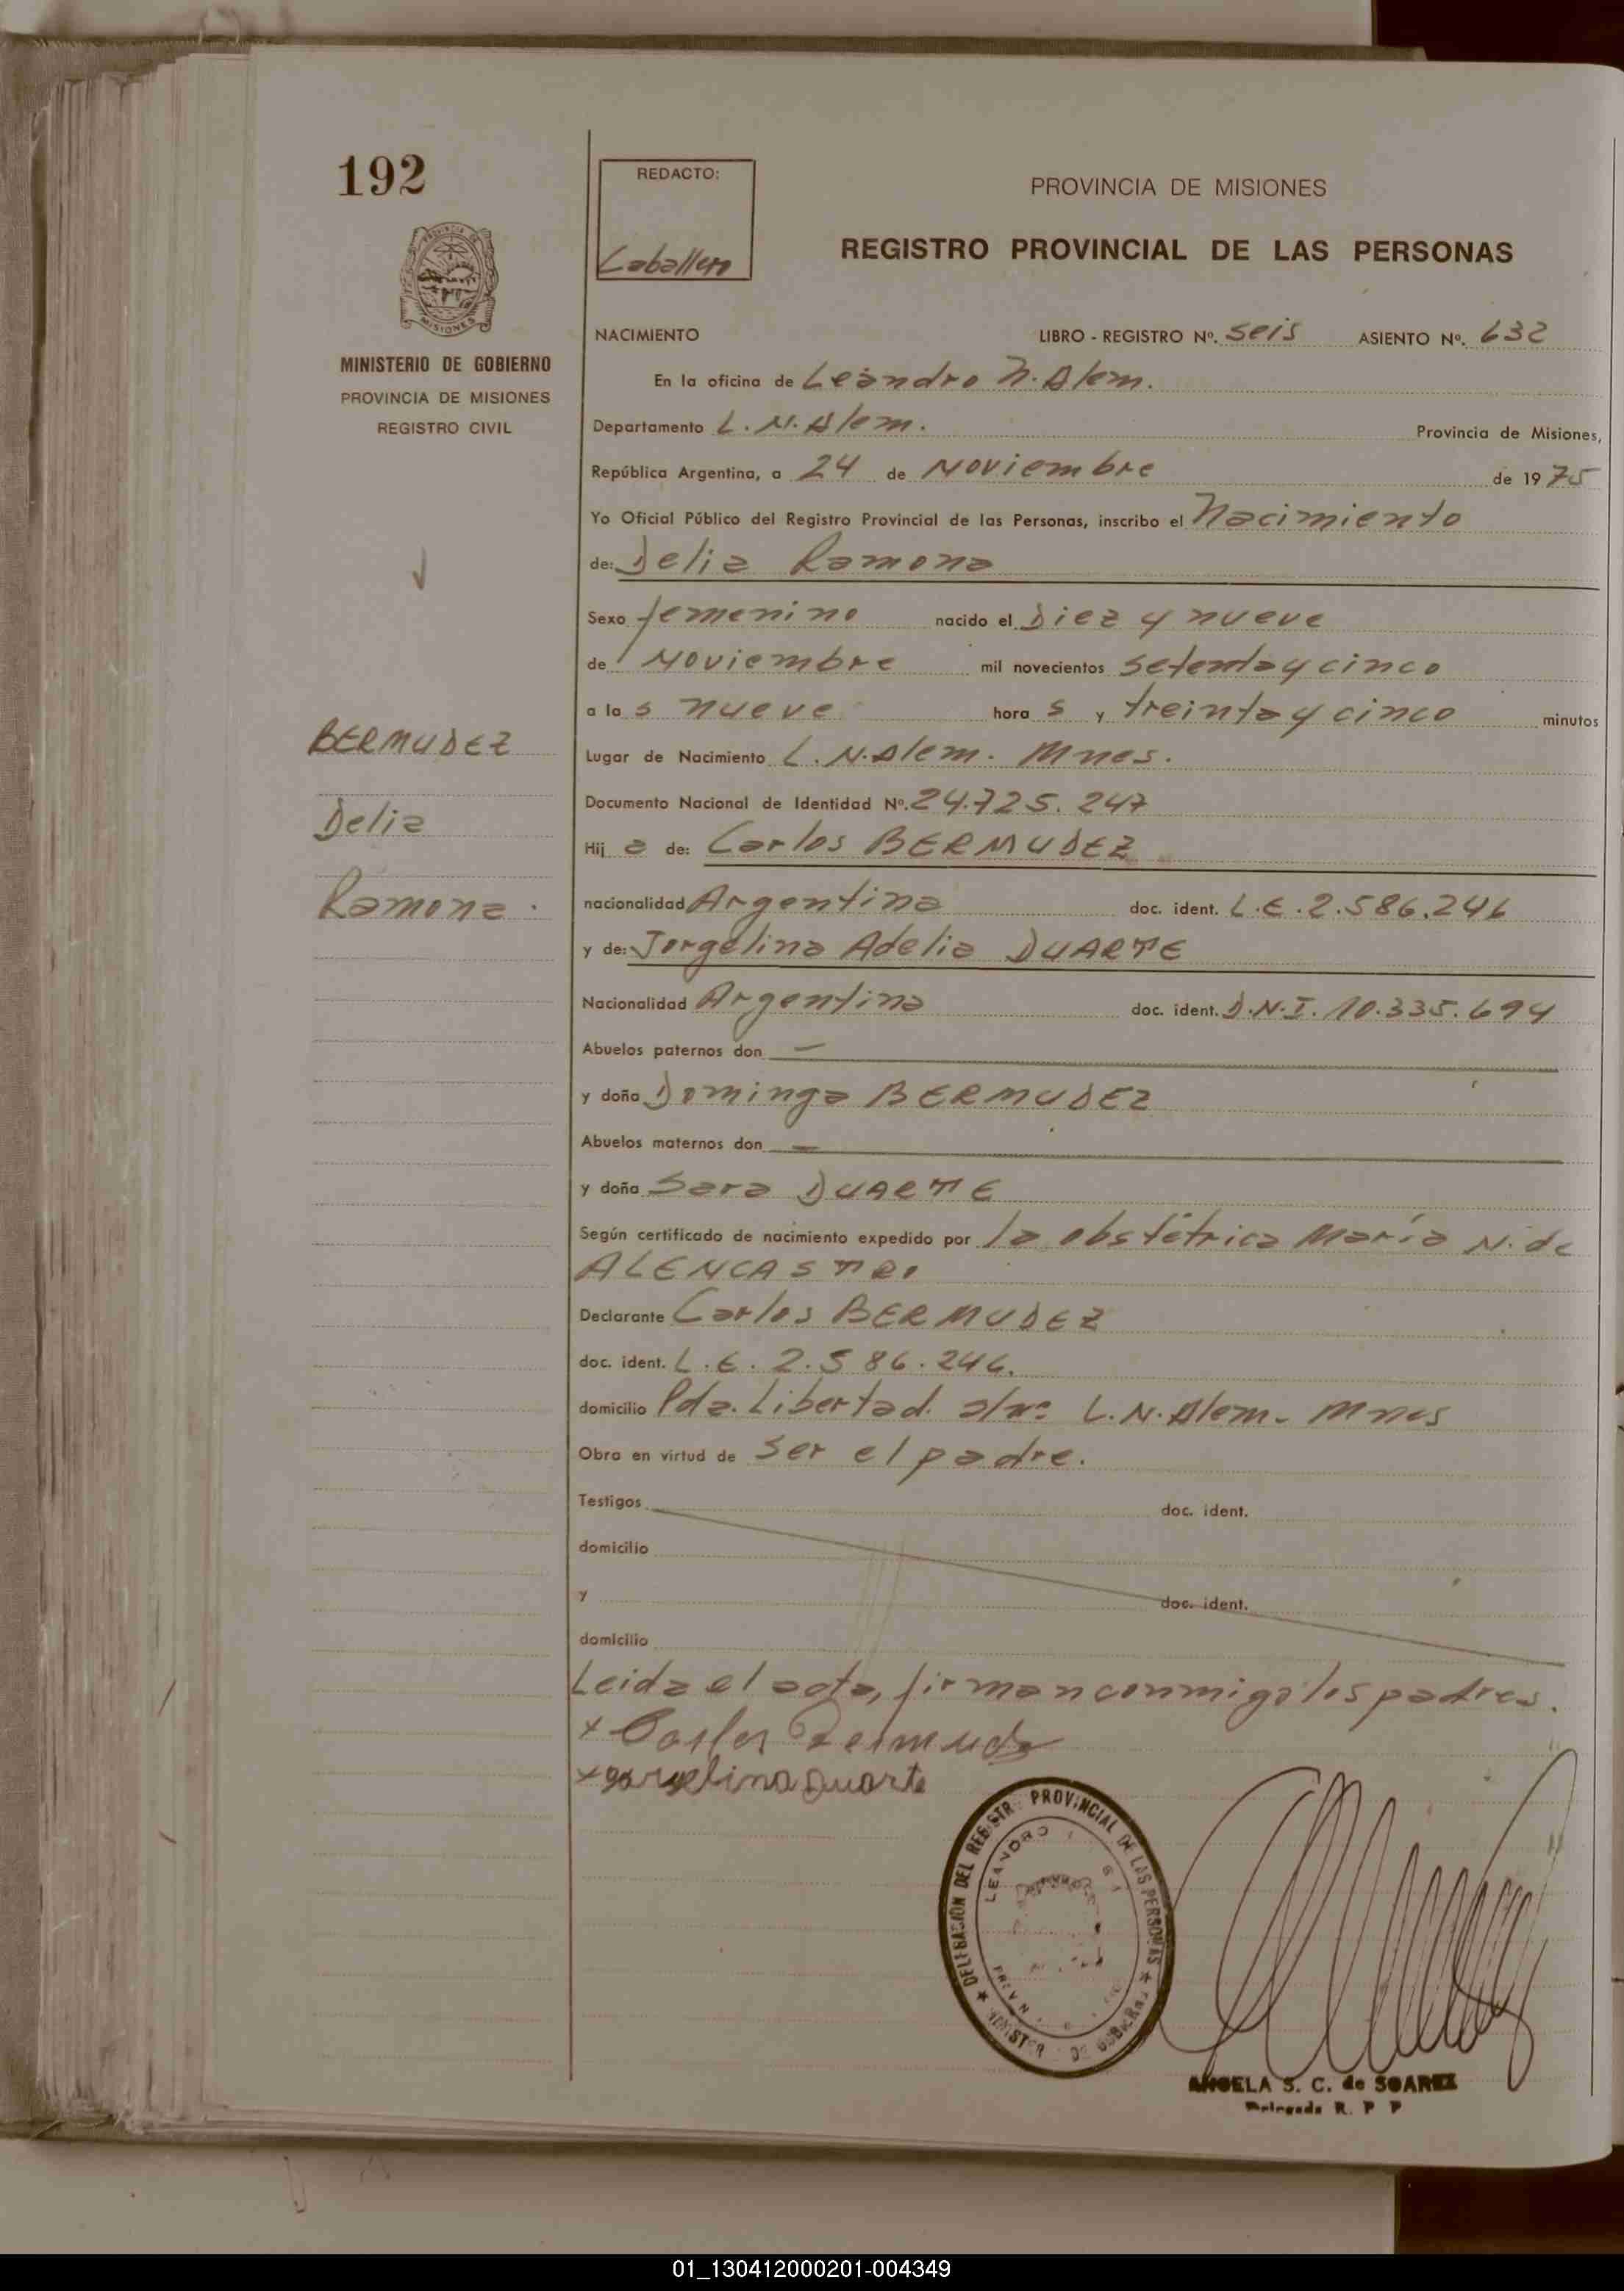 192
REDACTO:
Caballero
PROVINCIA DE MISIONES
REGISTRO PROVINCIAL DE LAS PERSONAS
MISIONES
MINISTERIO DE GOBIERNO
PROVINCIA DE MISIONES
REGISTRO CIVIL
NACIMIENTO LIBRO - REGISTRO Nº. Seis ASIENTO Nº. 632
En la oficina de Leandro N. Alem.
Departamento L. N. Alem. Provincia de Misiones,
República Argentina, a 24 de Noviembre de 1975
Yo Oficial Público del Registro Provincial de las Personas, inscribo el Nacimiento
de: Delia Ramona
Sexo femenino nacido el Diez y nueve
de Noviembre mil novecientos Setenta y cinco
a las nueve horas y treinta y cinco minutos
BERMUDEZ
Delia
Ramona.
Lugar de Nacimiento L. N. Alem. Mnes.
Documento Nacional de Identidad Nº. 24.725.247
Hija de: Carlos BERMUDEZ
nacionalidad Argentina doc. ident. L.E. 2.586.246
y de: Jorgelina Adelia DUARTE
Nacionalidad Argentina doc. ident. D.N.I. 10.335.694
Abuelos paternos don —
y doña Dominga BERMUDEZ
Abuelos maternos don —
y doña Sara DUARTE
Según certificado de nacimiento expedido por la obstétrica María N. de
ALENCASTRO
Declarante Carlos BERMUDEZ
doc. ident. L.E. 2.586.246.
domicilio Pda. Libertad. s/nº L.N. Alem. Mnes
Obra en virtud de Ser el padre.
Testigos doc. ident.
domicilio
y doc. ident.
domicilio
Leida el acta, firman conmigo los padres.
x Carlos Bermudez
x Jorgelina Duarte
DELEGACIÓN DEL REGISTR PROVINCIAL DE LAS PERSONAS
LEANDRO
ANGELA S. C. de SOAREZ
Delegada R. P P
01_130412000201-004349